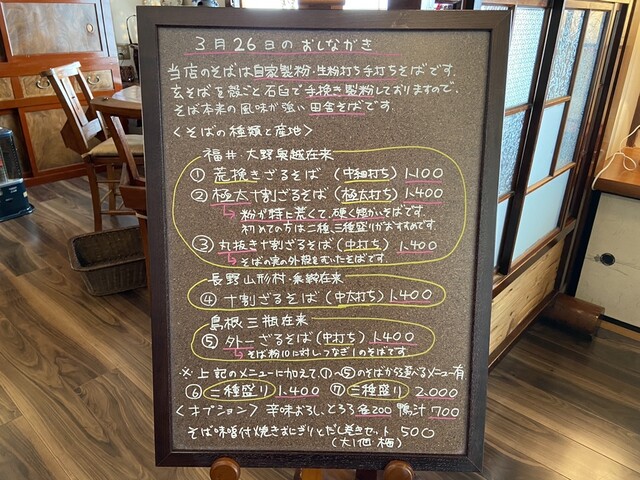 3月26日のおしながき
当店のそばは自家製粉・生粉打ち手打ちそばです。
玄そばを殻ごと石臼で手挽き製粉しておりますので、
そば本来の風味が強い田舎そばです。
<そばの種類と産地>
福井 大野 在来
① 荒挽きざるそば (中細打ち) 1.100
② 極太十割ざるそば (極太打ち) 1.400
粉が特に荒くて、硬く短かいそばです
初めての方は二種、三種盛りがおすすめです。
③ 丸抜き十割ざるそば (中打ち) 1.400
そばの実の外殻をむいたそばです
長野山形村・在来
④ 十割ざるそば (中太打ち) 1.400
島根三瓶在来
⑤ 外一ざるそば (中打ち) 1.400
そば粉10に対しつなぎ1のそばです
※上記のメニューに加えて、①〜⑤のそばから選べるメニュー有
⑥ 二種盛り 1.400 ⑦ 三種盛り 2.000
<オプション> 辛味おろし、とろろ各200 鴨汁700
そば味噌付焼きおにぎりとだし巻きセット 500